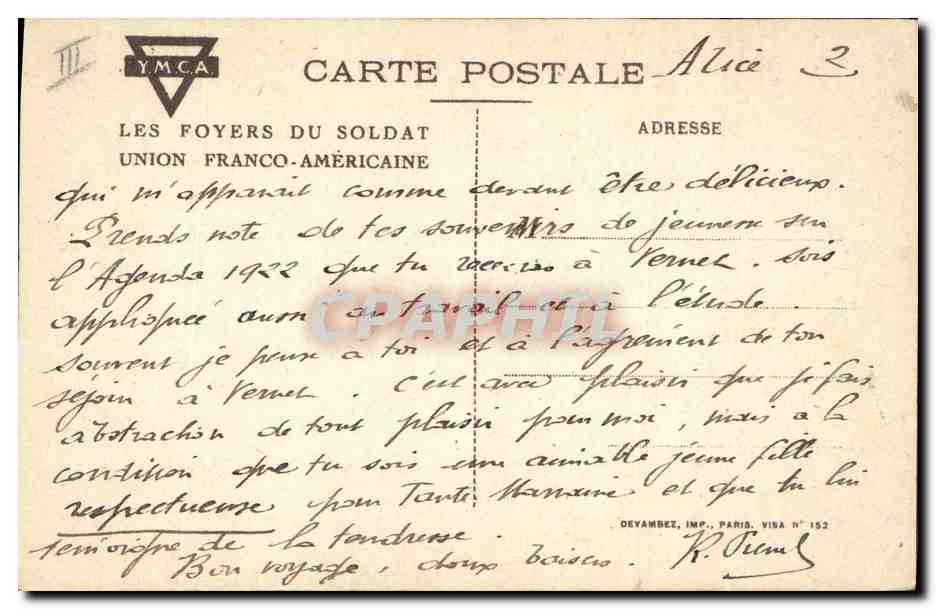 III
Y.M.C.A.
CARTE POSTALE
Alice 2
LES FOYERS DU SOLDAT
UNION FRANCO-AMÉRICAINE
ADRESSE
qui m'apparait comme devant être délicieux.
Prends note de tes souvenirs de jeunesse sur
l'Agenda 1922 que tu recevras à Vernet. Sois
appliquée aussi au travail et à l'étude.
souvent je pense à toi et à l'agrément de ton
séjour à Vernet. C'est avec plaisir que je fais
abstraction de tout plaisir pour moi, mais à la
condition que tu sois une aimable jeune fille
respectueuse pour Tante Marraine et que tu lui
témoigne de la tendresse.
Bon voyage, doux baisers. R.
DEVAMBEZ, IMP., PARIS. VISA N° 152
CPAPHIL